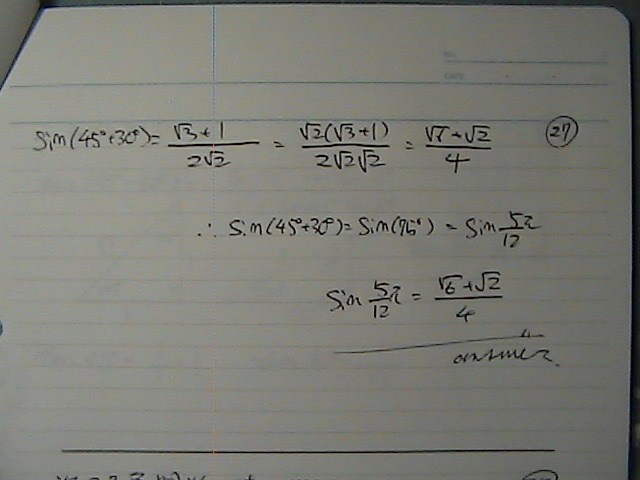 sin(45°+30°) = (√3+1)/(2√2) = (√2(√3+1))/(2√2√2) = (√7+√2)/4 ㉗
∴ sin(45°+30°) = sin(75°) = sin 5π/12
sin 5π/12 = (√6+√2)/4
answer